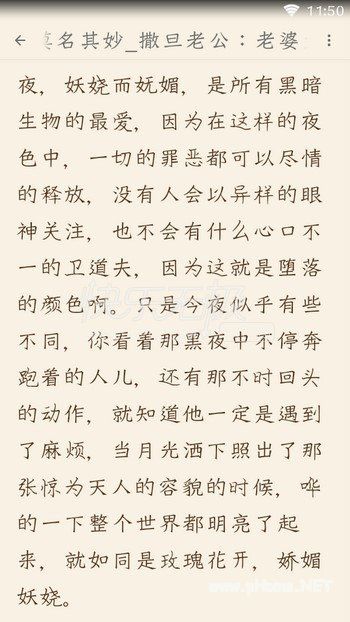 11:50
名其妙_撒旦老公：老婆
夜，妖娆而妩媚，是所有黑暗
生物的最爱，因为在这样的夜
色中，一切的罪恶都可以尽情
的释放，没有人会以异样的眼
神关注，也不会有什么心口不
一的卫道夫，因为这就是堕落
的颜色啊。只是今夜似乎有些
不同，你看着那黑夜中不停奔
跑着的人儿，还有那不时回头
的动作，就知道他一定是遇到
了麻烦，当月光洒下照出了那
张惊为天人的容貌的时候，哗
的一下整个世界都明亮了起
来，就如同是玫瑰花开，娇媚
妖娆。